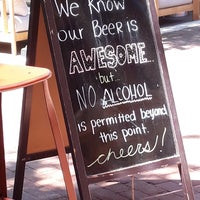 We Know
our Beer is
AWESOME...
but...
NO ALCOHOL
is permitted beyond
this point.
cheers!